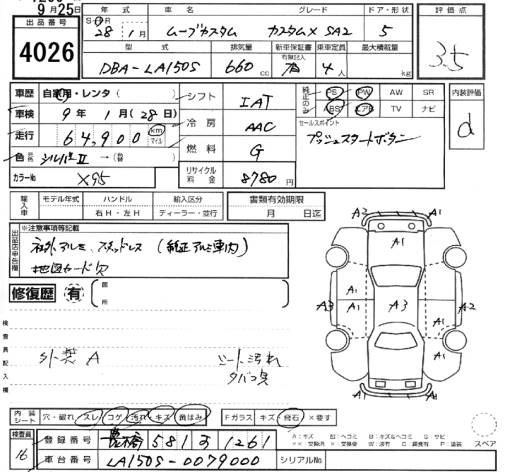 9月25日
出品番号
4026
年式 車名 グレード ドア・形状
S・H・R
28年 1月 ムーブカスタム カスタムX SA2 5
評価点
3.5
型式 排気量 新車保証書 乗車定員 最大積載量
有無記入
DBA-LA150S 660cc 有 4人 kg
車歴 自家用・レンタ( )
車検 9年 1月(28日)
走行 64,900 km マイル
色 シルバーII →(替 )
カラーNo X95
シフト IAT
冷房 AAC
燃料 G
リサイクル料金 8780円
純正のみ
PS PW AW SR
ABS エアB TV ナビ
セールスポイント
プッシュスタートボタン
内装評価
d
輸入車 モデル年式 ハンドル 輸入区分
年 右H・左H ディーラー・並行
書類有効期限
月 日迄
出品店申告欄
※注意事項等記載
社外アルミ、スタッドレス (純正アルミ車内)
地図カード欠
修復歴 有
箇所
検査員記入欄
外装A
シート汚れ
タバコ臭
A2 A2
A1
A1 A1
A3 A1 A3 A1 A2
A1
内装シート 穴・破れ スレ コゲ 汚れ キズ 黄ばみ
Fガラス キズ 飛石 ×要す
検査員
16
登録番号 豊橋 581 す 1261
車台番号 LA150S-0079000
シリアルNo.
スペア